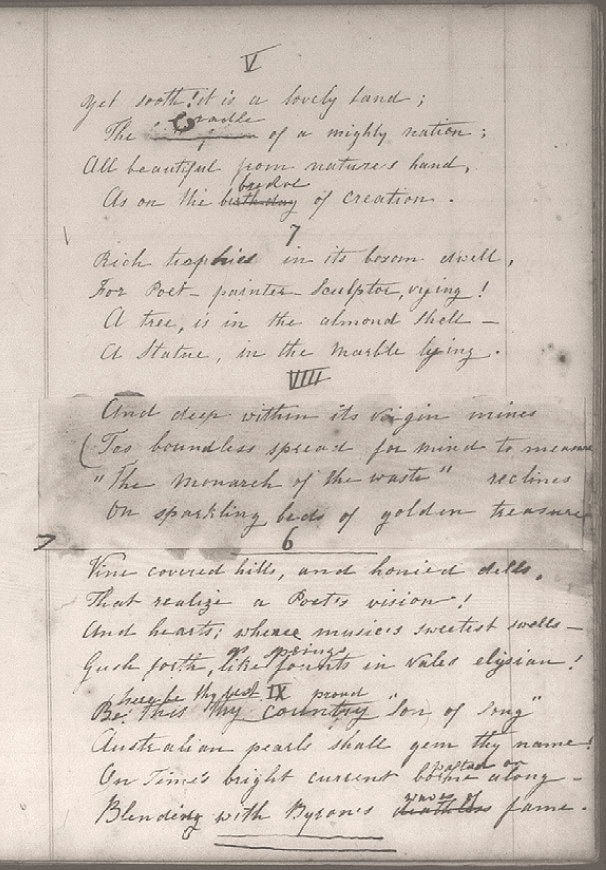 V
Yet sooth! it is a lovely land;
Cradle
The of a mighty nation;
All beautiful from nature's hand,
bridal
As on the birthday of creation.
7
Rich trophies in its bosom dwell,
For Poet - painter - Sculptor, vying!
A tree, is in the almond shell -
A Statue, in the Marble lying.
VIII
And deep within its virgin mines
(Too boundless spread for mind to measure
"The Monarch of the waste" reclines
On sparkling beds of golden treasure
6
Vine covered hills, and honied dells,
That realize a Poet's vision!
And hearts; whence music's sweetest swells -
or springs
Gush forth, like founts in Vales elysian!
here be thy rest IX proud
Be: This thy country "Son of Song"
Australian pearls shall gem thy name!
wafted on
On Time's bright current borne along -
waves of
Blending with Byron's deathless fame.